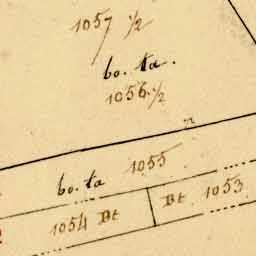 1057 1/2
bo. ta.
1056 1/2
bo. ta 1055
1054 Bt
Bt 1053